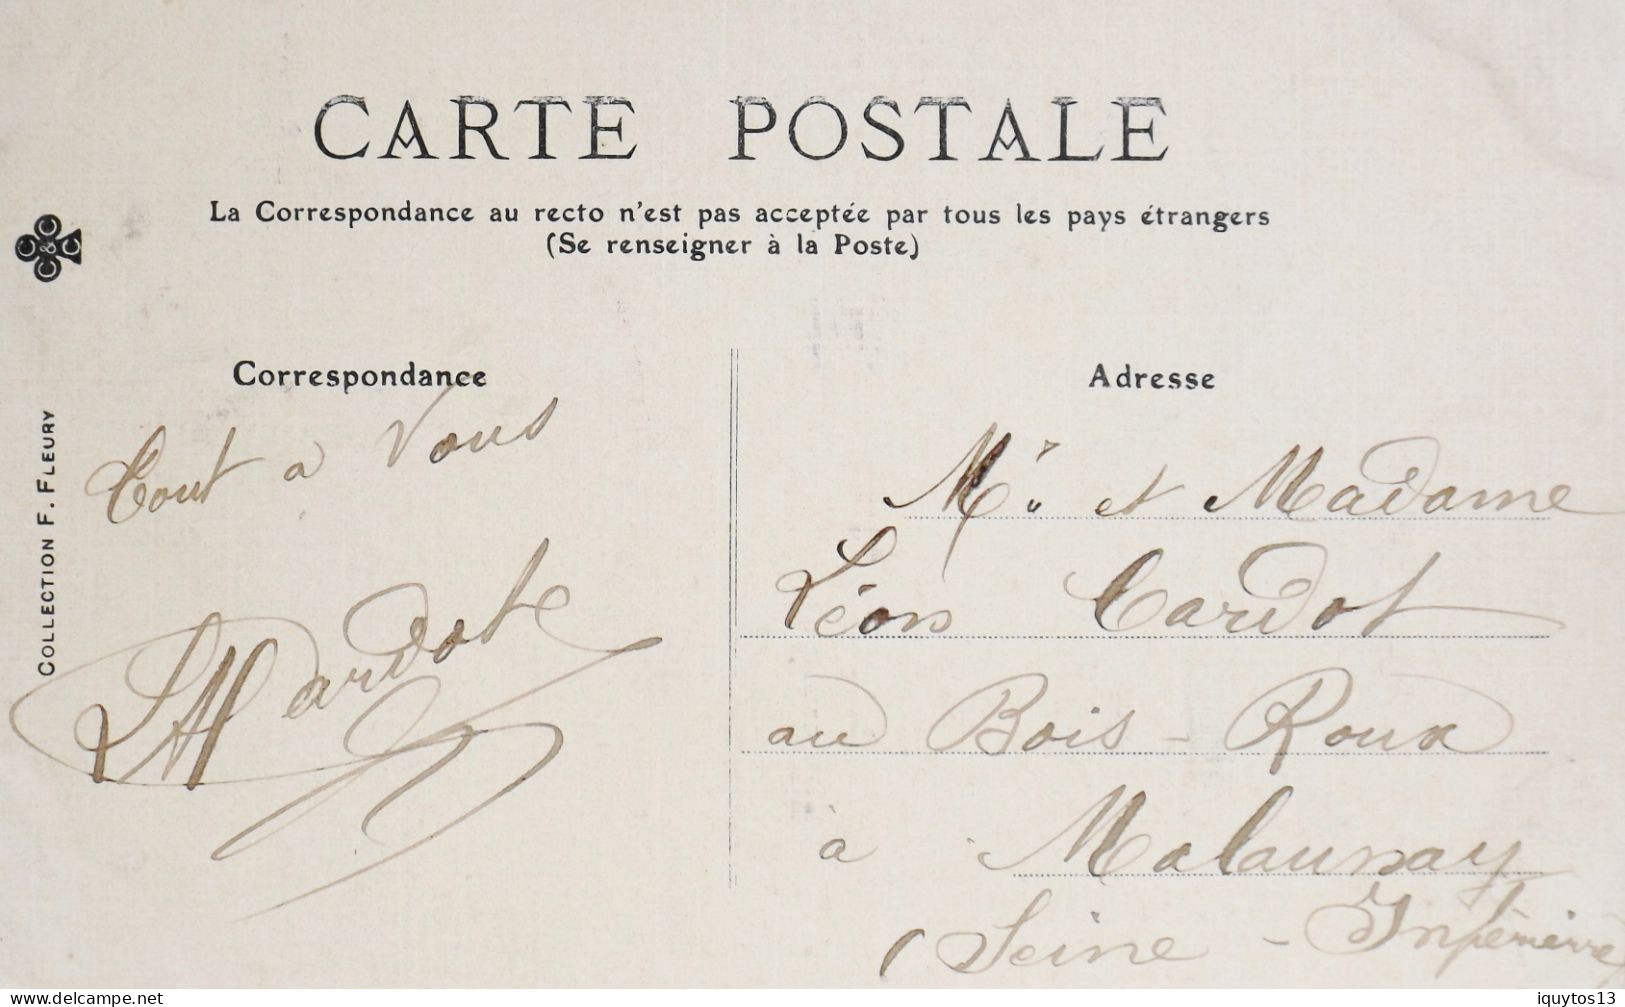 CARTE POSTALE
La Correspondance au recto n'est pas acceptée par tous les pays étrangers
(Se renseigner à la Poste)
C C & C C
COLLECTION F. FLEURY
Correspondance
Tout a Vous
Adresse
Mr et Madame
Léon Cardot
au Bois-Roux
à Malaunay
(Seine-Inférieure)
www.delcampe.net
iquytos13